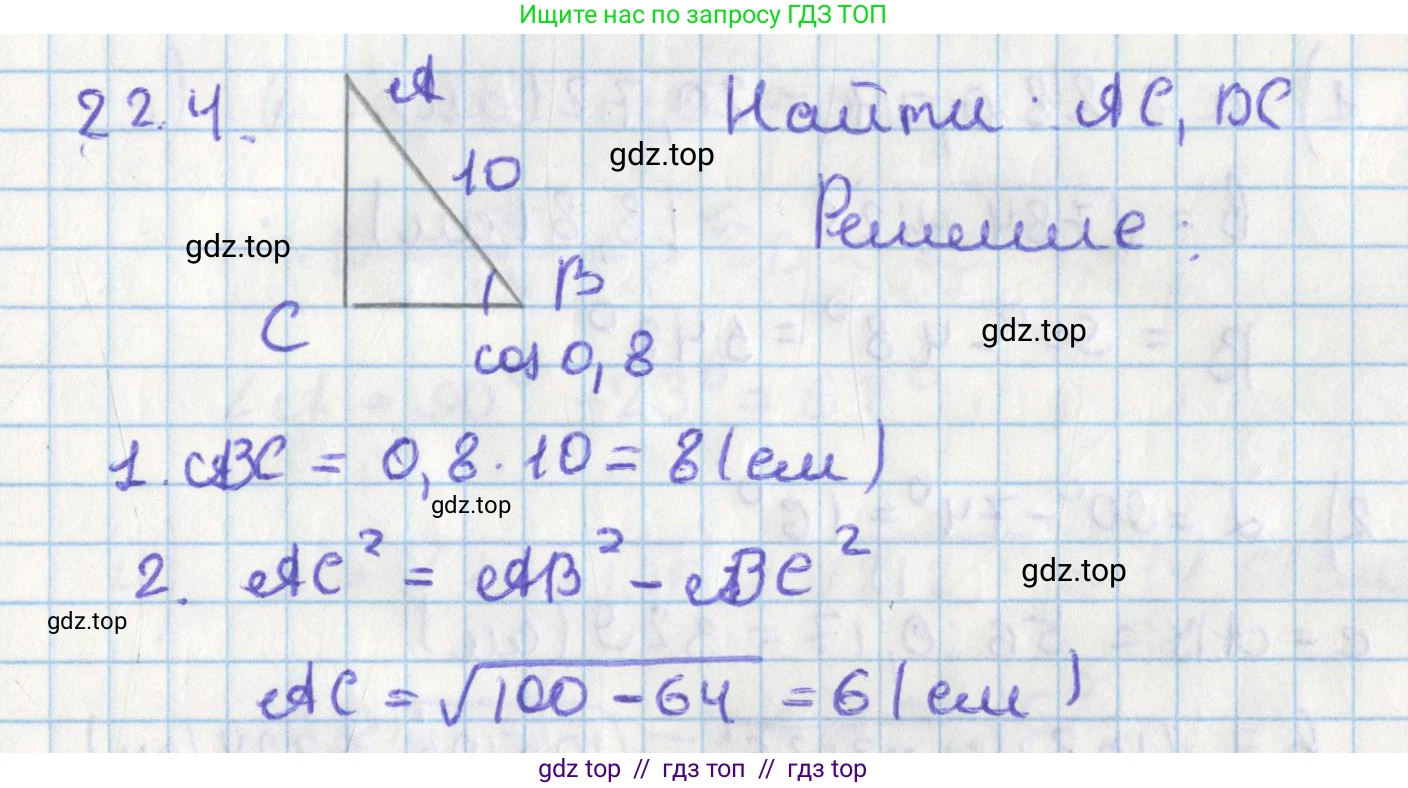 Ищите нас по запросу ГДЗ ТОП
22.4.
A
Найти: AC, BC
10
gdz.top
Решение:
gdz.top
B
C
gdz.top
cos 0,8
1. BC = 0,8 · 10 = 8 (см)
gdz.top
2. AC² = AB² - BC²
gdz.top
gdz.top
AC = √100 - 64 = 6 (см)
gdz top // гдз топ // гдз top